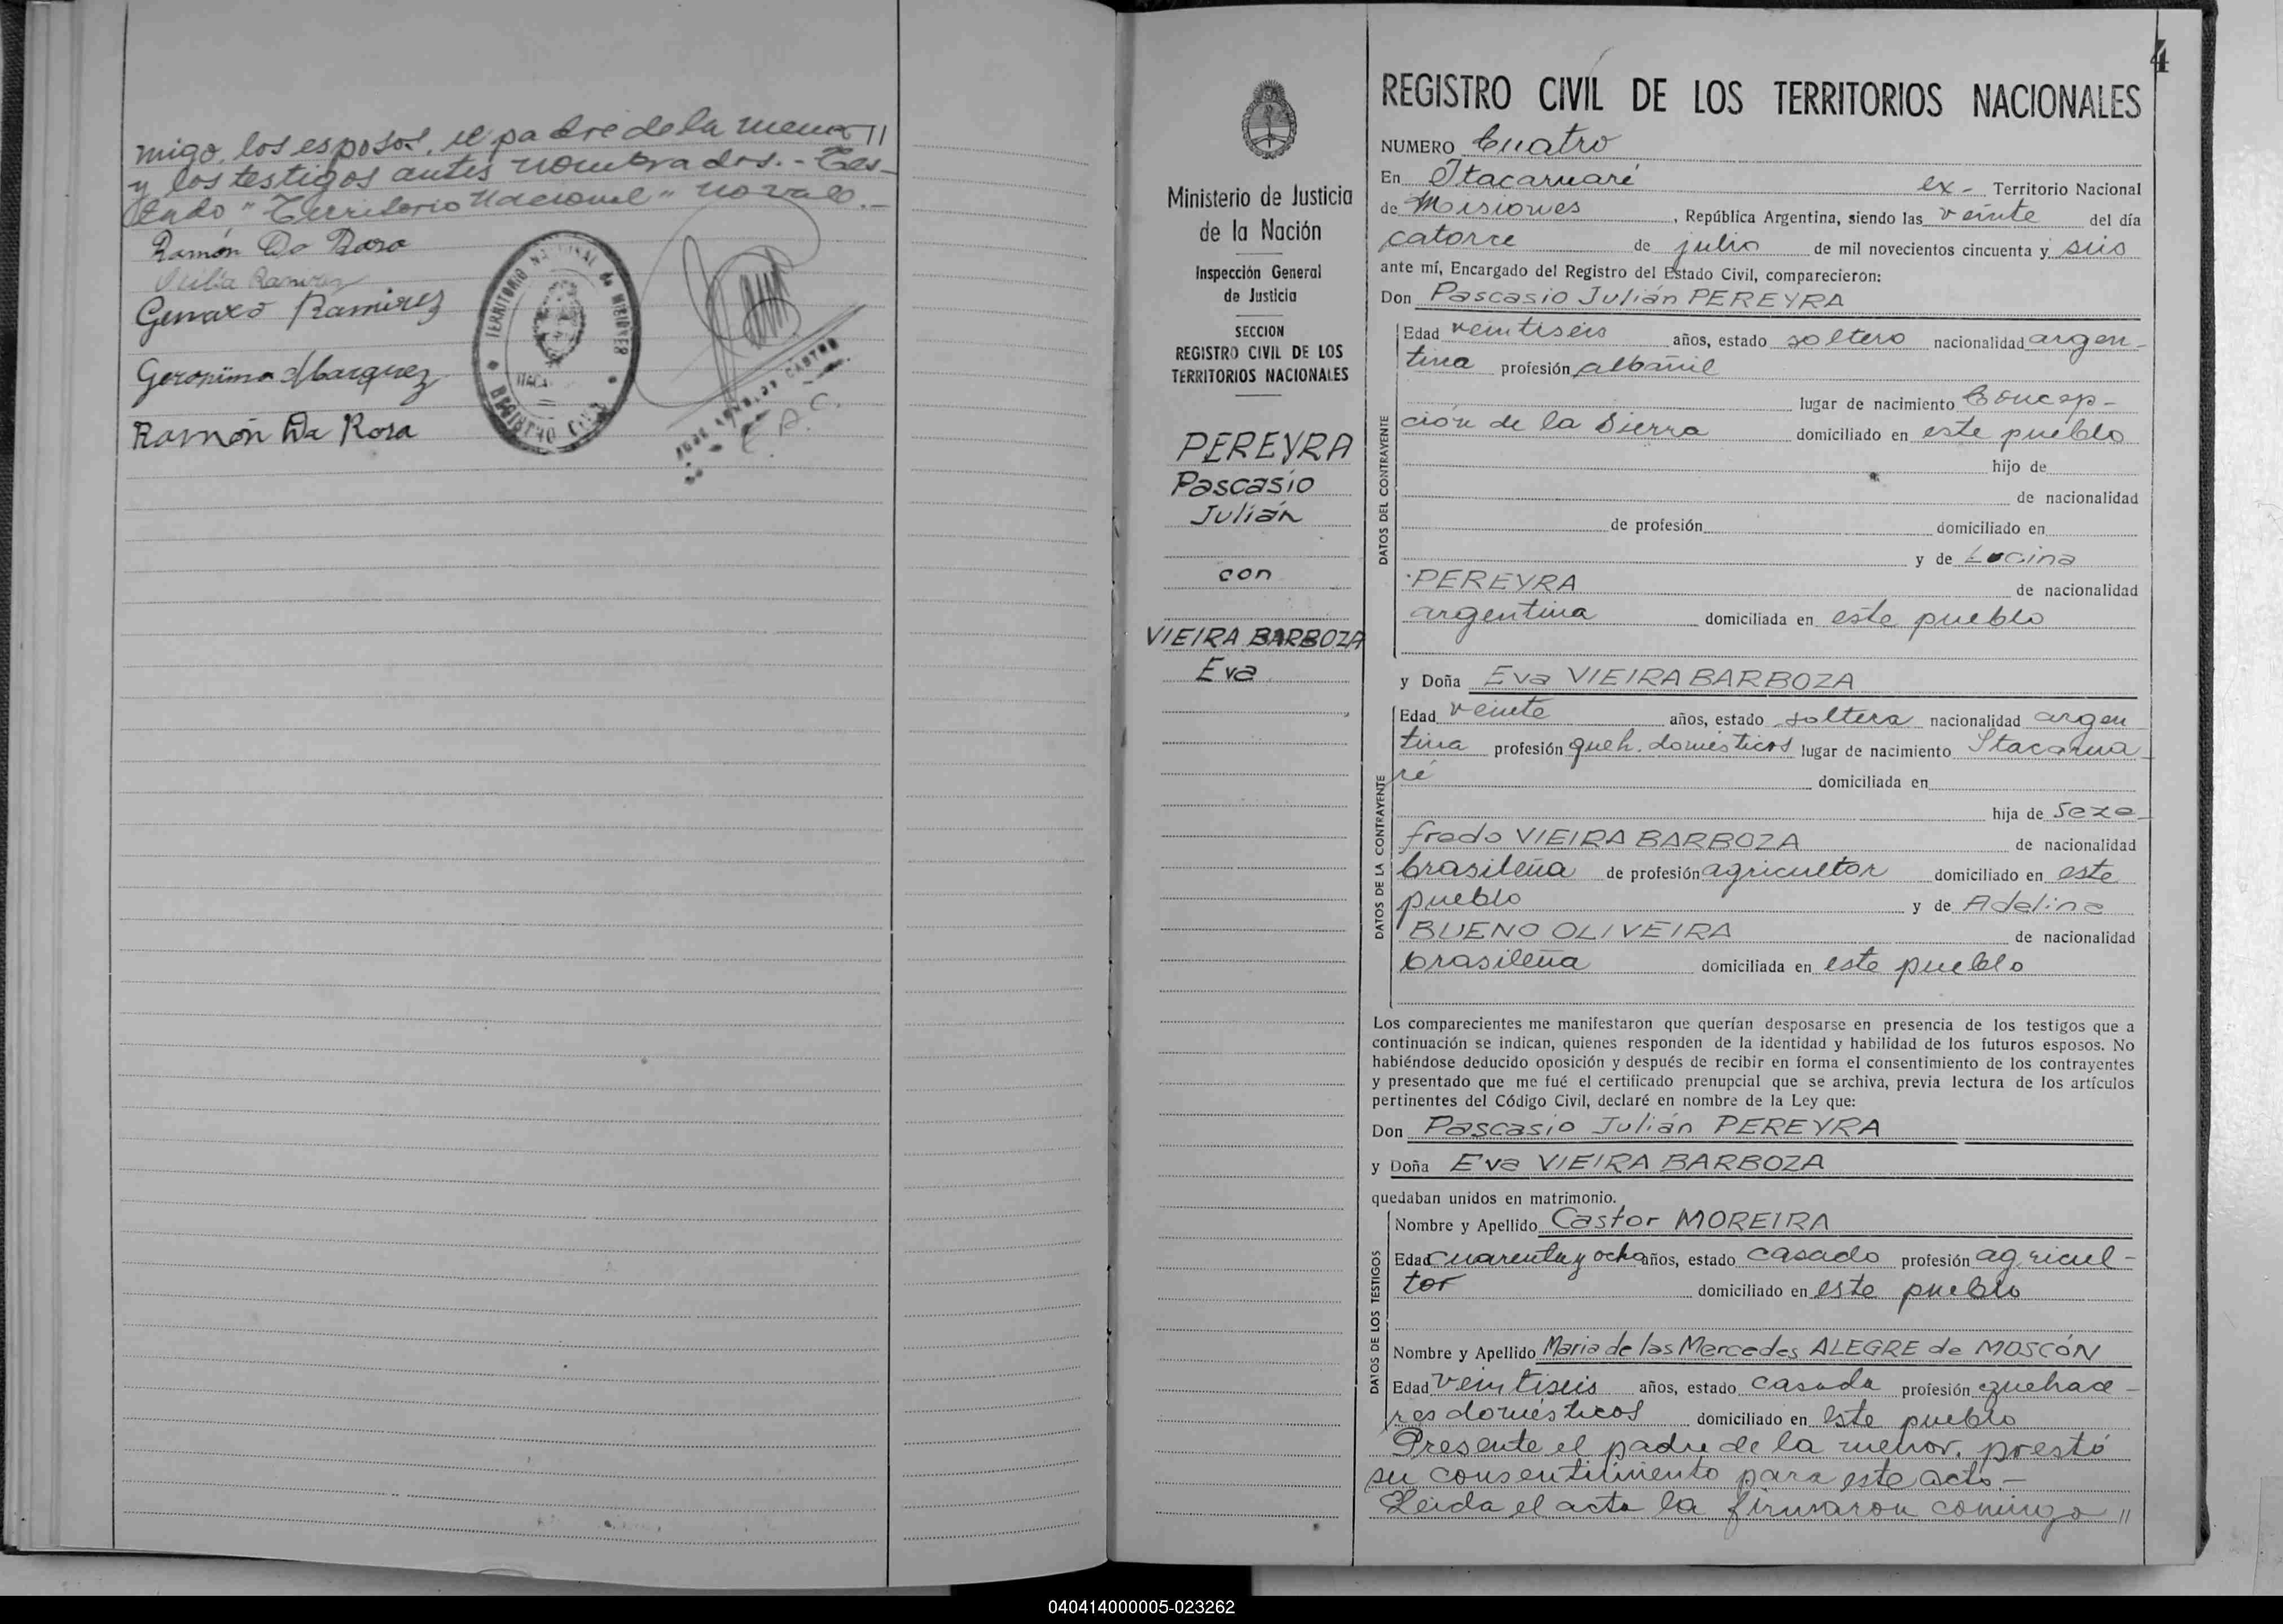 migo, los esposos, el padre de la menor //
y los testigos antes nombrados.- Tes-
tado "Territorio Nacional" no vale.-
Ramón Da Rosa
Ramirez
Genaro Ramirez
Geronima Marquez
Ramón Da Rosa
TERRITORIO NACIONAL de MISIONES
REGISTRO CIVIL
4
REGISTRO CIVIL DE LOS TERRITORIOS NACIONALES
Ministerio de Justicia
de la Nación
Inspección General
de Justicia
SECCION
REGISTRO CIVIL DE LOS
TERRITORIOS NACIONALES
PEREYRA
Pascasio
Julián
con
VIEIRA BARBOZA
Eva
NUMERO Cuatro
En Itacaruaré ex- Territorio Nacional
de Misiones, República Argentina, siendo las veinte del día
catorce de julio de mil novecientos cincuenta y seis
ante mí, Encargado del Registro del Estado Civil, comparecieron:
Don Pascasio Julián PEREYRA
DATOS DEL CONTRAYENTE
Edad veintiseis años, estado soltero nacionalidad argen-
tina profesión albañil
lugar de nacimiento Concep-
ción de la Sierra domiciliado en este pueblo
hijo de
de nacionalidad
de profesión domiciliado en
y de Lucina
PEREYRA de nacionalidad
argentina domiciliada en este pueblo
y Doña Eva VIEIRA BARBOZA
DATOS DE LA CONTRAYENTE
Edad veinte años, estado soltera nacionalidad argen
tina profesión queh. domésticos lugar de nacimiento Itacarua
ré domiciliada en
hija de Seze-
fredo VIEIRA BARBOZA de nacionalidad
brasileña de profesión agricultor domiciliado en este
pueblo y de Adelina
BUENO OLIVEIRA de nacionalidad
brasileña domiciliada en este pueblo
Los comparecientes me manifestaron que querían desposarse en presencia de los testigos que a
continuación se indican, quienes responden de la identidad y habilidad de los futuros esposos. No
habiéndose deducido oposición y después de recibir en forma el consentimiento de los contrayentes
y presentado que me fué el certificado prenupcial que se archiva, previa lectura de los artículos
pertinentes del Código Civil, declaré en nombre de la Ley que:
Don Pascasio Julián PEREYRA
y Doña Eva VIEIRA BARBOZA
quedaban unidos en matrimonio.
DATOS DE LOS TESTIGOS
Nombre y Apellido Castor MOREIRA
Edad cuarenta y ocho años, estado casado profesión agricul-
tor domiciliado en este pueblo
Nombre y Apellido Maria de las Mercedes ALEGRE de MOSCÓN
Edad veintiseis años, estado casada profesión quehace-
res domésticos domiciliado en este pueblo
Presente el padre de la menor, prestó
su consentimiento para este acto.-
Leida el acta la firmaron conmigo //
040414000005-023262